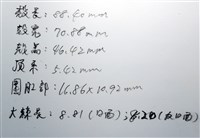 殼長：88.40mm
殼寬：70.88mm
殼高：46.42mm
頂示：5.42mm
圍肛部：16.86×10.92mm
大棘長：8.81(口面)；8.20(反口面)